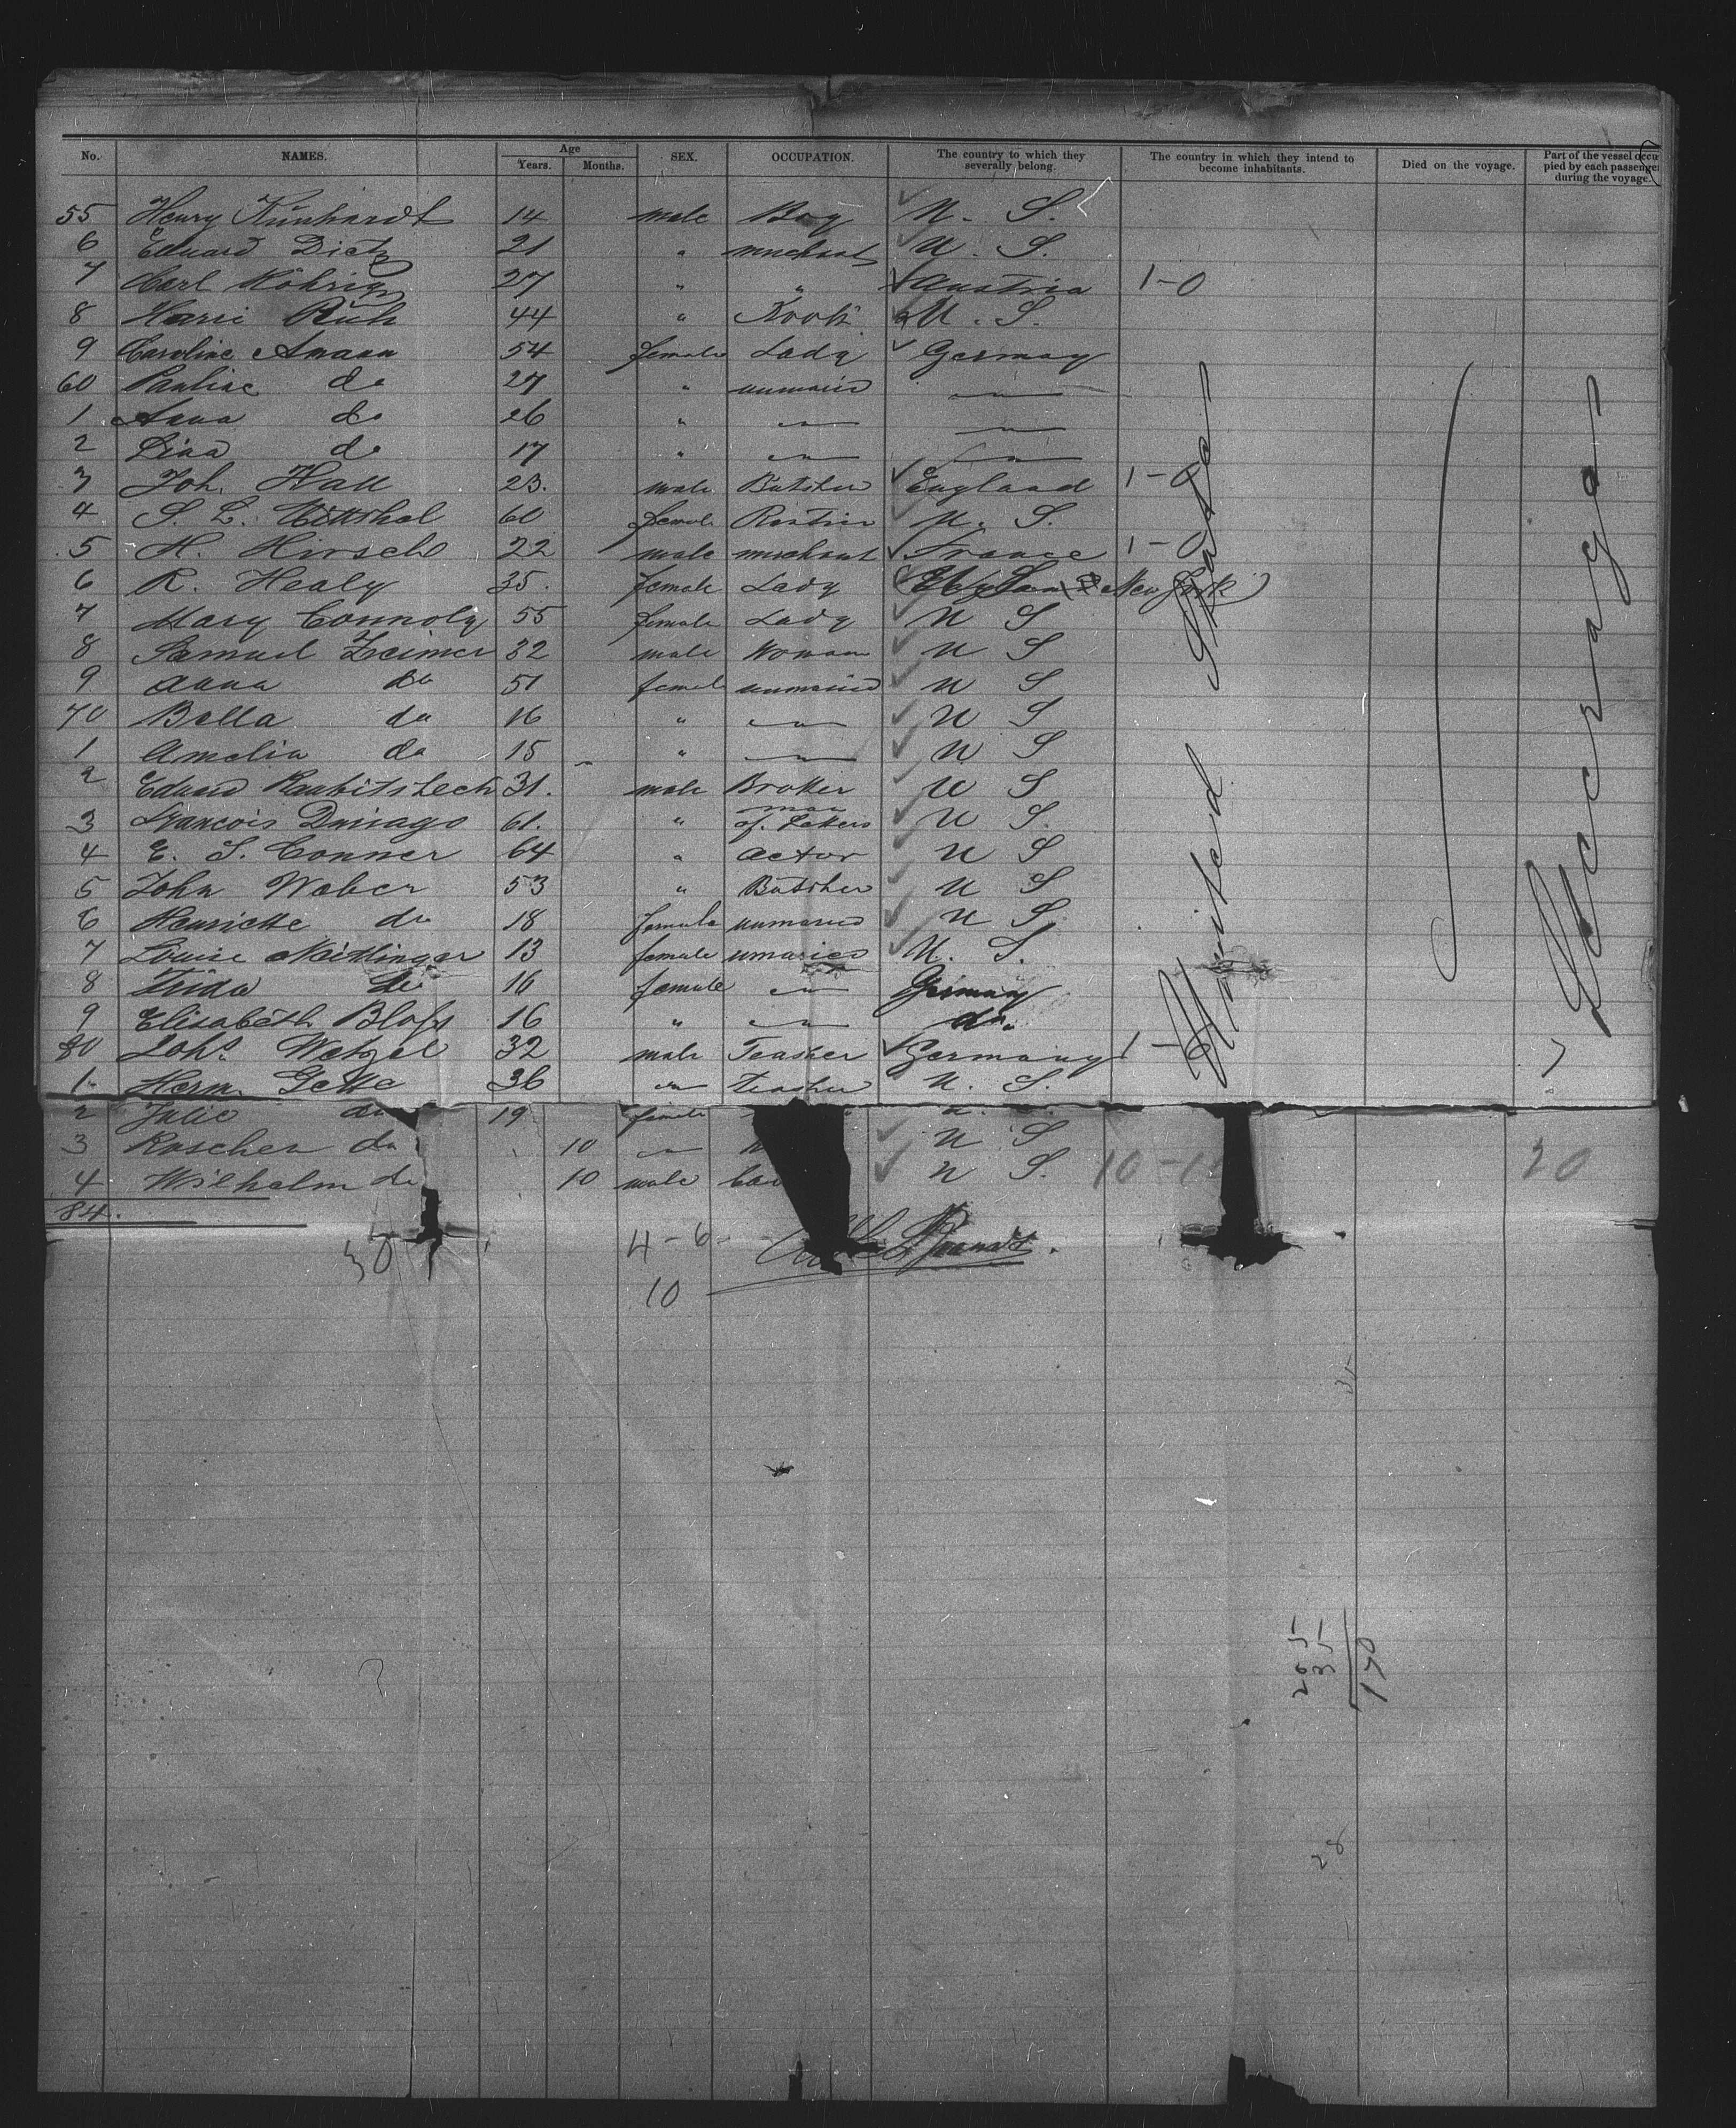 No. NAMES. Age Years. Months. SEX. OCCUPATION. The country to which they severally belong. The country in which they intend to become inhabitants. Died on the voyage. Part of the vessel occupied by each passenger during the voyage.
55 Henry Kunhardt 14 male Boy U. S.
6 Eduard Dietz 21 " merchant U. S.
7 Carl Röhrig 27 " " Austria 1-0
8 44 " Kook U. S.
9 Caroline Amann 54 female Lady Germany
60 Pauline do 27 " unmaried
1 Anna do 26 "
2 Lina do 17 "
3 Joh. Hall 23. male Butcher England 1-0
4 S. L. 60 female U. S.
5 H. Hirsch 22 male merchant France 1-0
6 R. Healy 35. female Lady New York
7 Mary Connoly 55 female Lady U S
8 Samuel 32 male Woman U S
9 Anna do 51 female unmaried U S
70 Bella do 16 " U S
1 Amelia do 15 " U S
2 Eduard 31. male Broker U S
3 Francois 61. " man of U S.
4 E. S. Conner 64 " actor U S
5 John Weber 53 " Butcher U S
6 Henriette do 18 female unmaried U S.
7 Louise Neitlinger 13 female umaried U. S.
8 Frida do 16 female Germany
9 Elisabeth Bloss 16 " do.
80 Johs. Wetzel 32 male Teasher Germany 1-
1 Herm. Gette 36 Teasher U. S.
2 Julie do 19 female
3 do 10 U S
4 Wilhelm do 10 male U S. 10-1 20
84.
United States
Steerage
30 4-6-
10
35
170
28